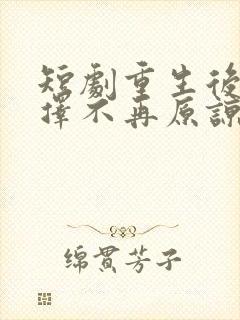 短劇重生後
擇不再原諒
绵貫芳子